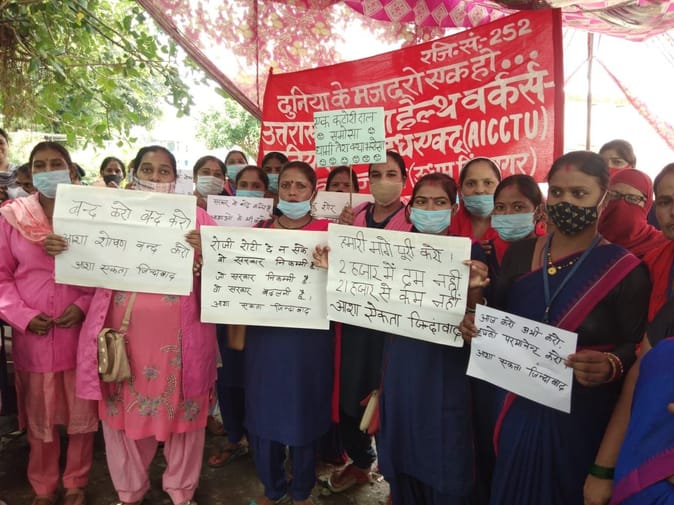 रजि. सं.-252
दुनिया के मजदूरो एक हो...
उत्तरा
हैल्थ वर्कर्स
(AICCTU)
एक कटोरी दाल
समोसा
बन्द करो बन्द करो
आशा शोषण बन्द करो
आशा एकता जिन्दाबाद
रोजी रोटी दे न सके
जो सरकार निकम्मी है
जो सरकार निकम्मी है
वो सरकार बदलनी है।
आशा एकता जिन्दाबाद
हमारी मांगे पूरी करो।
2 हजार में दम नहीं
21 हजार से कम नहीं
आशा ऐकता जिन्दाबाद
आज करो अभी करो,
हमको परमानेन्ट करो
आशा एकता जिन्दाबाद